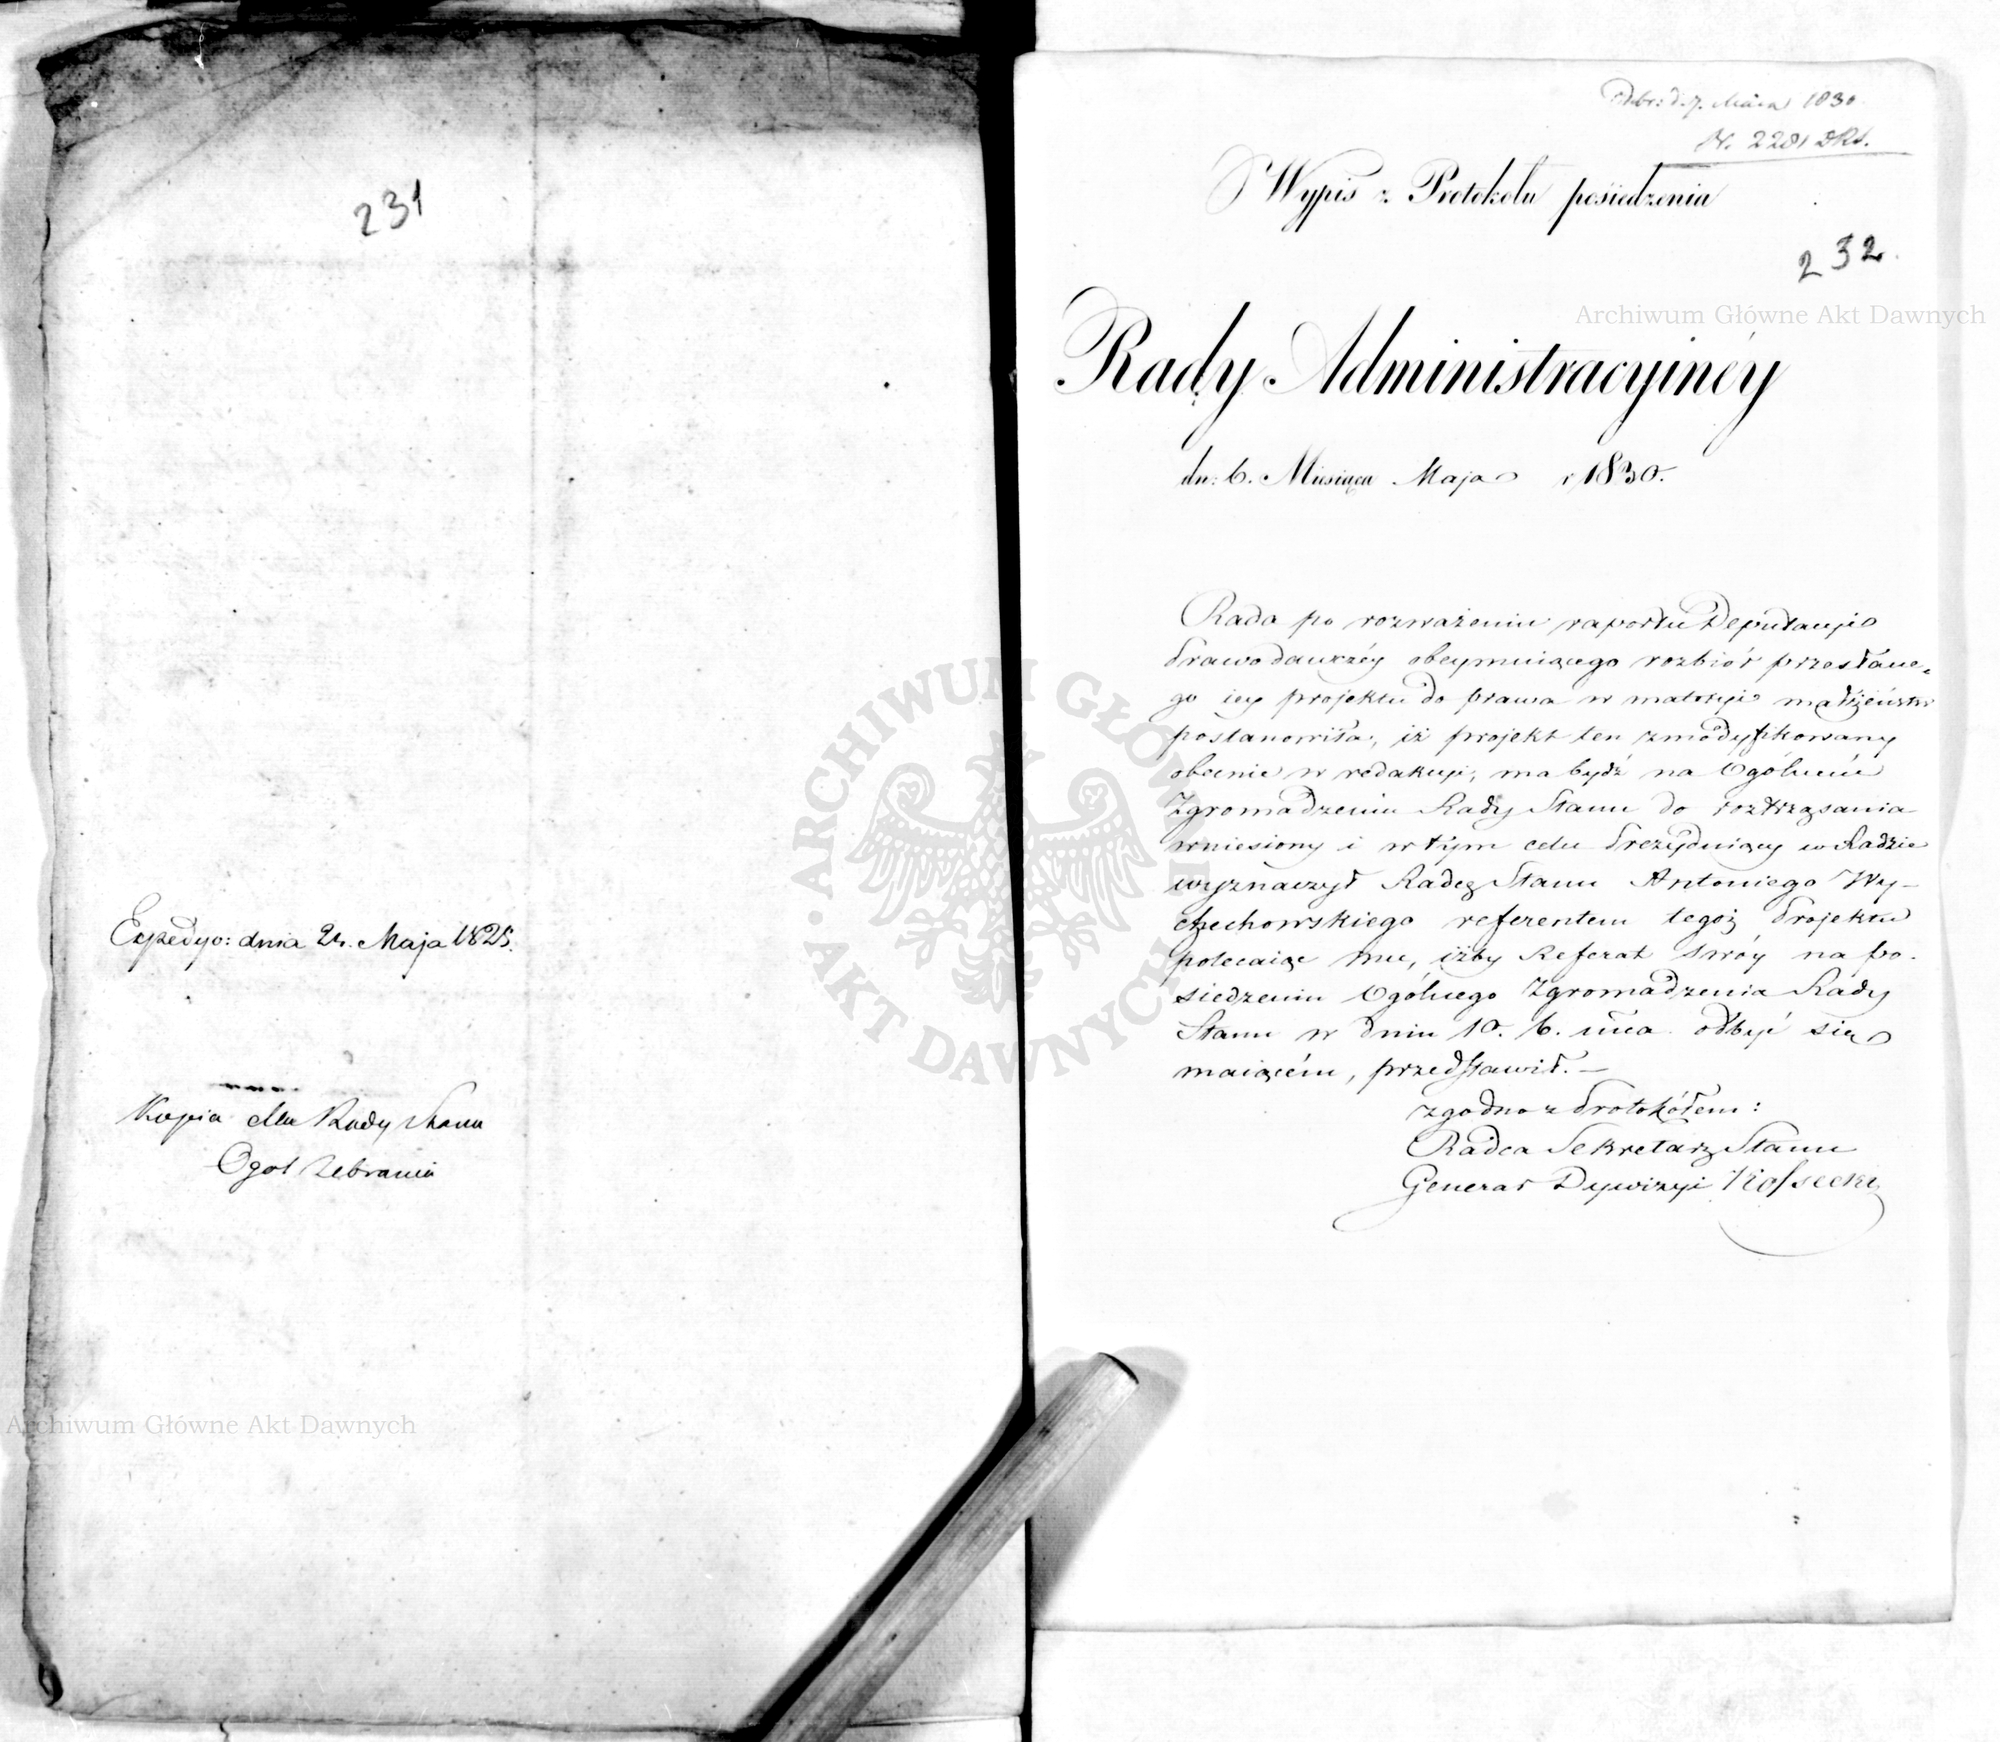 231
Expedyo: dnia 21. Maja 1825.
Kopia dla Rady Stanu
Ogol Zebrania
Odebr: d. 7. Maia 1830
Nr. 2281 DRS.
Wypis z Protokolu posiedzenia
232.
Rady Administracyinéy
dn: 6. Miesiąca Maja r 1830.
Rada po rozważeniu raportu Deputacyi
Prawodawczéy obeymuiącego rozbiór przesłane-
go iey projektu do prawa w materyi małżeństw
postanowiła, iż projekt ten zmodyfikowany
obecnie w redakcyi, ma bydź na Ogólném
Zgromadzeniu Rady Stanu do roztrząsania
wniesiony i w tym celu Prezyduiący w Radzie
wyznaczył Radcę Stanu Antoniego Wy-
czechowskiego referentem tegoż Projektu
polecaiąc mu, iżby Referat swóy na po-
siedzeniu Ogólnego Zgromadzenia Rady
Stanu w dniu 10. b. mca odbyć się
maiącém, przedstawił. —
zgodno z Protokółem:
Radca Sekretarz Stanu
Generał Dywizyi Kossecki
Archiwum Główne Akt Dawnych
Archiwum Główne Akt Dawnych
ARCHIWUM GŁÓWNE AKT DAWNYCH